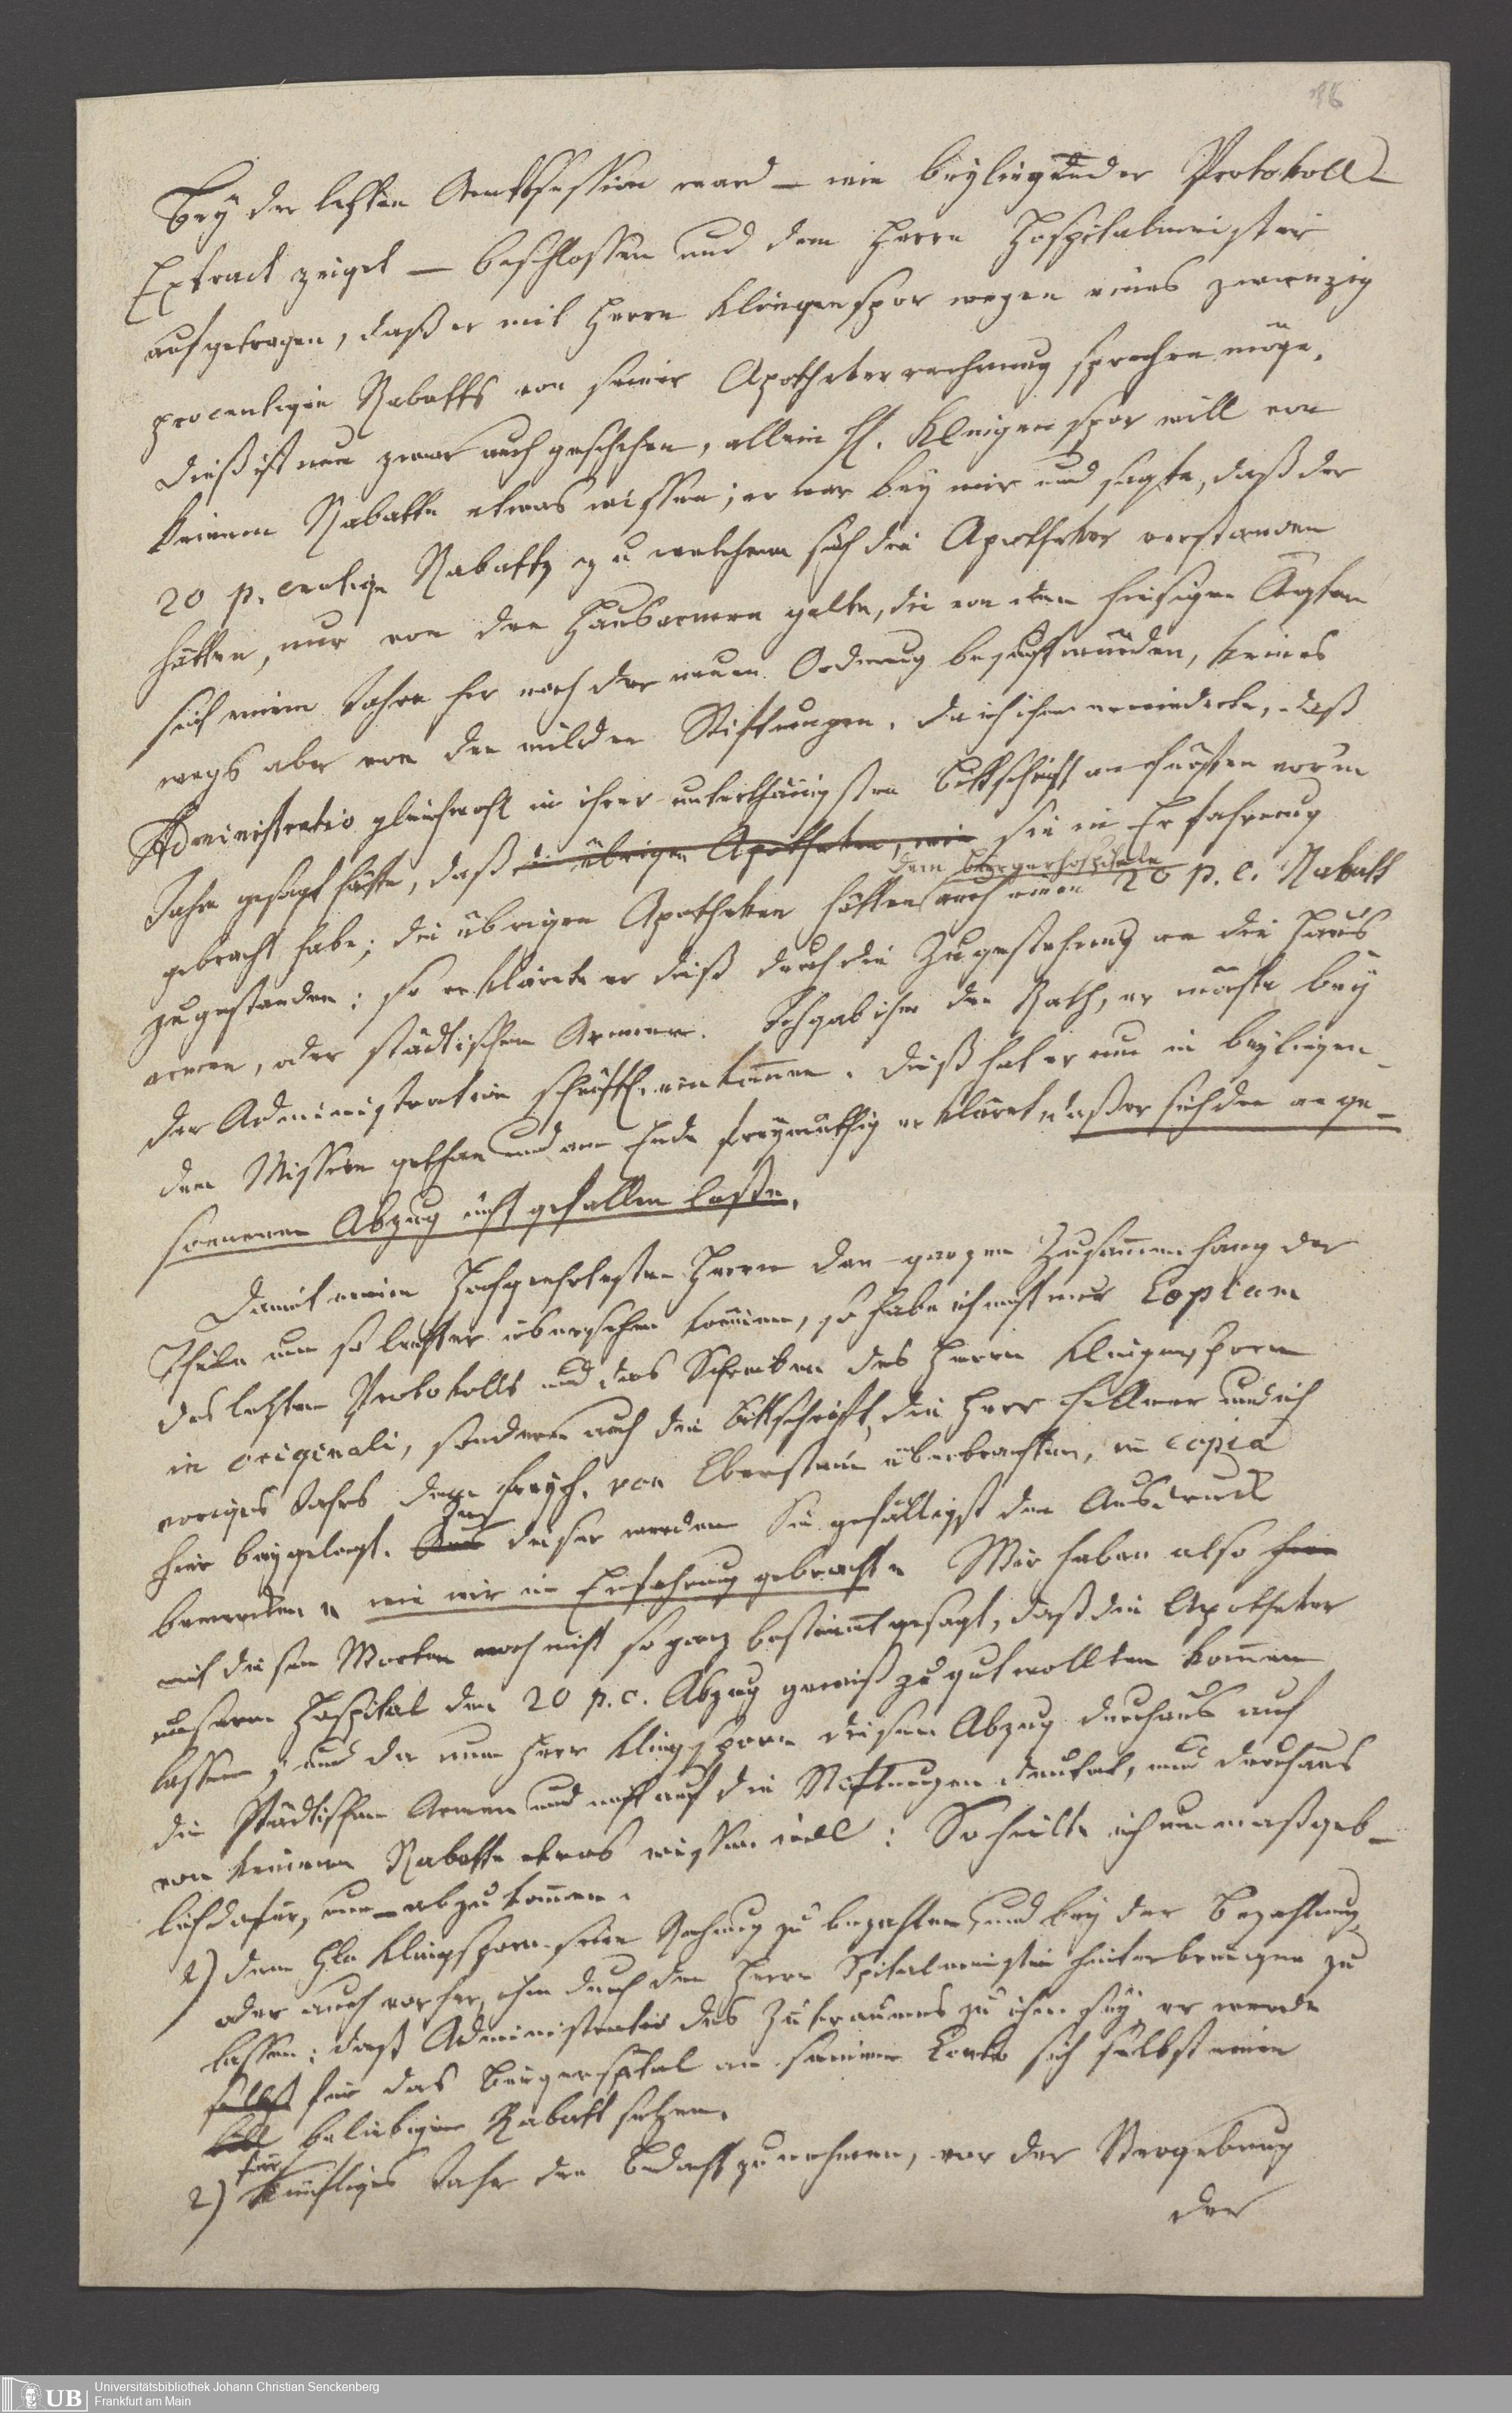 Bey der letzten Amtssession ward – wie beyliegender Protokoll-
Extract zeiget – beschlossen und dem Herrn Hospitalmeister
aufgetragen, daß er mit Herrn Klingenspor wegen eines zwanzig
procentigen Rabatts von seiner Apothekerrechnung sprechen möge.
Dieß ist nun zwar auch geschehen, allein H. Klingenspor will von
keinem Rabatte etwas wissen; er war bey mir und sagte, daß der
20 p. centige Rabatt, zu welchem sich die Apotheker verstanden
hätten, nur von den Hausarmen gelte, die von den hiesigen Ärzten
seit einem Jahre her nach der neuen Ordnung besucht würden, keines
wegs aber von den milden Stiftungen. Da ich ihm erwiederte, daß
Administratio gleichwohl in ihrer unterthänigsten Bittschrift am ersten vorm
Jahre gesagt hätte, daß die übrigen Apotheken, wie sie in Erfahrung
dem Bürgerhospitale
gebracht habe; die übrigen Apotheken hätten auch einen 20 p. c. Rabatt
zugestanden; so erklärte er dieß durch die Zugestehung an die Haus
armen, oder städtischen Armen. Ich gab ihm den Rath, er möchte bey
der Administration schriftl. einkommen. Dieß hat er nun in beyliegen-
dem Missiv gethan und am Ende freymüthig erklärt, daß er sich den ange-
sonnenen Abzug nicht gefallen lasse.
Damit meine Hochgeehrtesten Herrn den ganzen Zusammenhang der
Theile um so leichter übersehen können, so habe ich nicht nur Copiam
des letzten Protokolls und das Schreiben des Herrn Klingenspor
in originali, sondern auch die Bittschrift, die Herr Fellner und ich
voriges Jahr dem Freyh. von Eberstein überbrachten, in copia
hier beygelegt. Aus dieser werden Sie gefälligst den Ausdruck
In
bemerken „ wie wir in Erfahrung gebracht “ Wir haben also hier
mit diesen Worten noch nicht so ganz bestimmt gesagt, daß die Apotheker
unserm Hospital den 20 p. c. Abzug gewiß zu gut wollten kommen
lassen; und da nun Herr Klingsporn diesen Abzug durchaus auf
die städtischen Armen und nicht auf die Stiftungen deutet, und durchaus
von keinem Rabatte etwas wissen will: So hielte ich unmaßgeb-
lich dafür, um – abzukommen.
1) dem Hrn Klingsporn seine Rechnung zu bezahlen, und bey der Bezahlung
oder auch vorher, ihm durch den Herrn Spitalmeister hinterbringen zu
lassen; daß Administratio des Zutrauens zu ihm sey, er werde
selbst für das Bürgerspital an seinem Conto sich selbst einen
beliebigen Rabatt setzen.
für
2) künftiges Jahr den Bedacht zu nehmen, vor der Vergebung
der
Universitätsbibliothek Johann Christian Senckenberg
Frankfurt am Main
UB